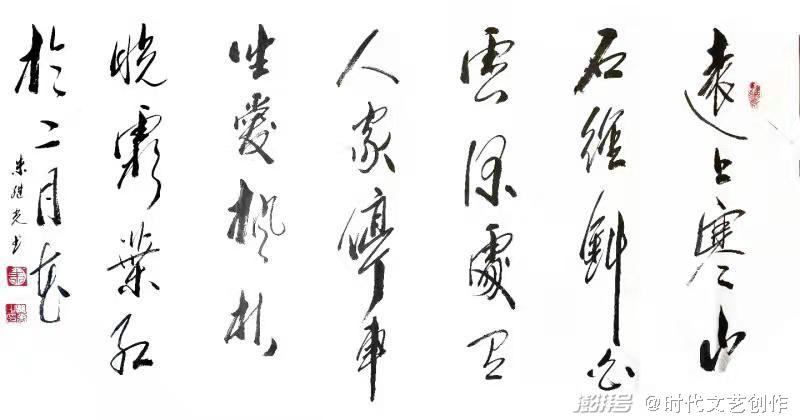 遠上寒山
石徑斜白
雲深處有
人家停車
坐愛楓林
晚霜葉紅
於二月花
朱继光书
澎湃号 @时代文艺创作